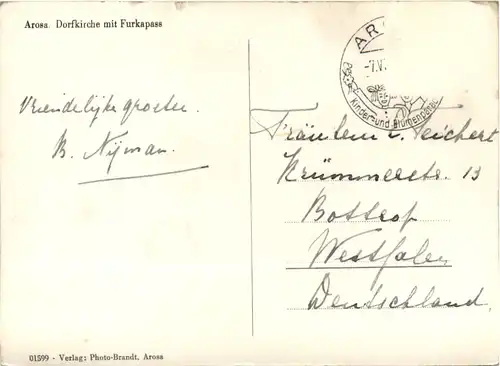 Arosa. Dorfkirche mit Furkapass
Vriendelijke groeten.
B. Nijman.
AR
-7.V
Kinder- und Blumenparad
Fräulein v. Teichert
Krümmerstr. 13
Bottrop
Westfalen
Deutschland.
01599 - Verlag: Photo-Brandt, Arosa